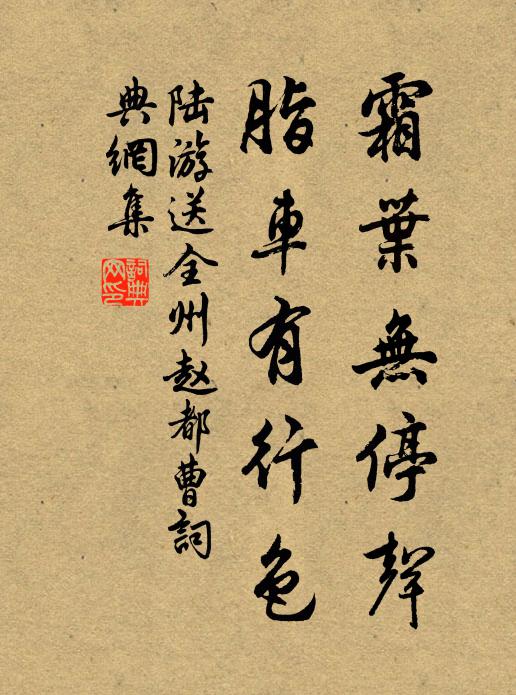 霜葉無停聲
脂車有行色
陸游送全州赵都曹詞
典網集
詞典
网印